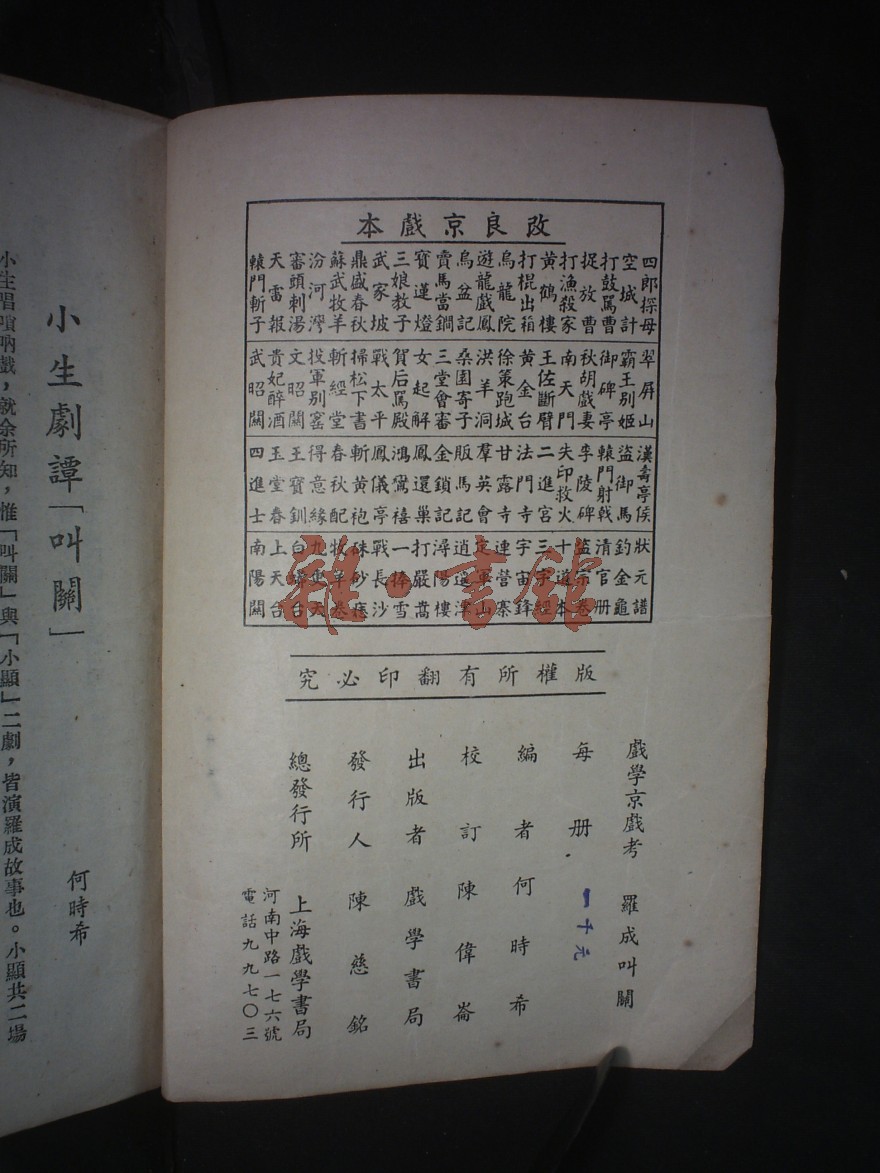 改良京戲本
四郎探母
空城計
打鼓罵曹
捉放曹
打漁殺家
黃鶴樓
打棍出箱
烏龍院
遊龍戲鳳
烏盆記
賣馬當鐧
寶蓮燈
三娘教子
武家坡
鼎盛春秋
蘇武牧羊
汾河灣
審頭刺湯
天雷報
轅門斬子
翠屏山
霸王別姬
御碑亭
秋胡戲妻
南天門
王佐斷臂
黃金台
徐策跑城
洪羊洞
桑園寄子
三堂會審
女起解
賀后罵殿
戰太平
掃松下書
斬經堂
投軍別窰
文昭關
貴妃醉酒
武昭關
漢壽亭侯
盜御馬
轅門射戟
李陵碑
失印救火
二進宮
法門寺
甘露寺
羣英會
販馬記
金鎖記
鳳還巢
鴻鸞禧
鳳儀亭
斬黃袍
春秋配
得意緣
王寶釧
玉堂春
四進士
狀元譜
釣金龜
清官册
盜宗卷
十道本
三字經
宇宙鋒
連營寨
定軍山
逍遙津
潯陽樓
打嚴嵩
一捧雪
戰長沙
硃砂痣
牧羊卷
九更天
白蟒台
上天台
南陽關
雜·書館
版權所有翻印必究
戲學京戲考 羅成叫關
每册 一千元
編者 何時希
校訂 陳偉崙
出版者 戲學書局
發行人 陳慈銘
總發行所 上海戲學書局
河南中路一七六號
電話九九七〇三
何時希
小生劇譚「叫關」
小生唱嗩吶戲，就余所知，惟「叫關」與「小顯」二劇，皆演羅成故事也。小顯共二場